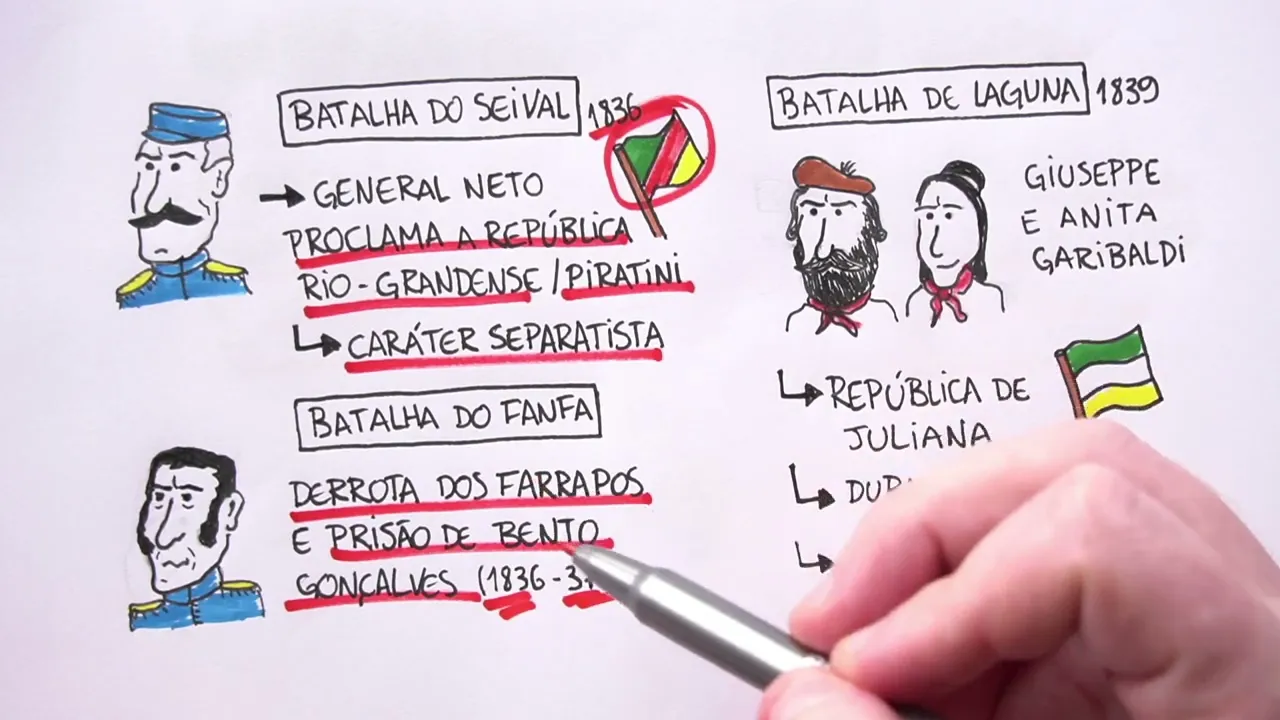 BATALHA DO SEIVAL 1836
→ GENERAL NETO
PROCLAMA A REPÚBLICA
RIO-GRANDENSE / PIRATINI
CARÁTER SEPARATISTA
BATALHA DO FANFA
DERROTA DOS FARRAPOS
E PRISÃO DE BENTO
GONÇALVES (1836-37
BATALHA DE LAGUNA 1839
GIUSEPPE
E ANITA
GARIBALDI
REPÚBLICA DE
JULIANA